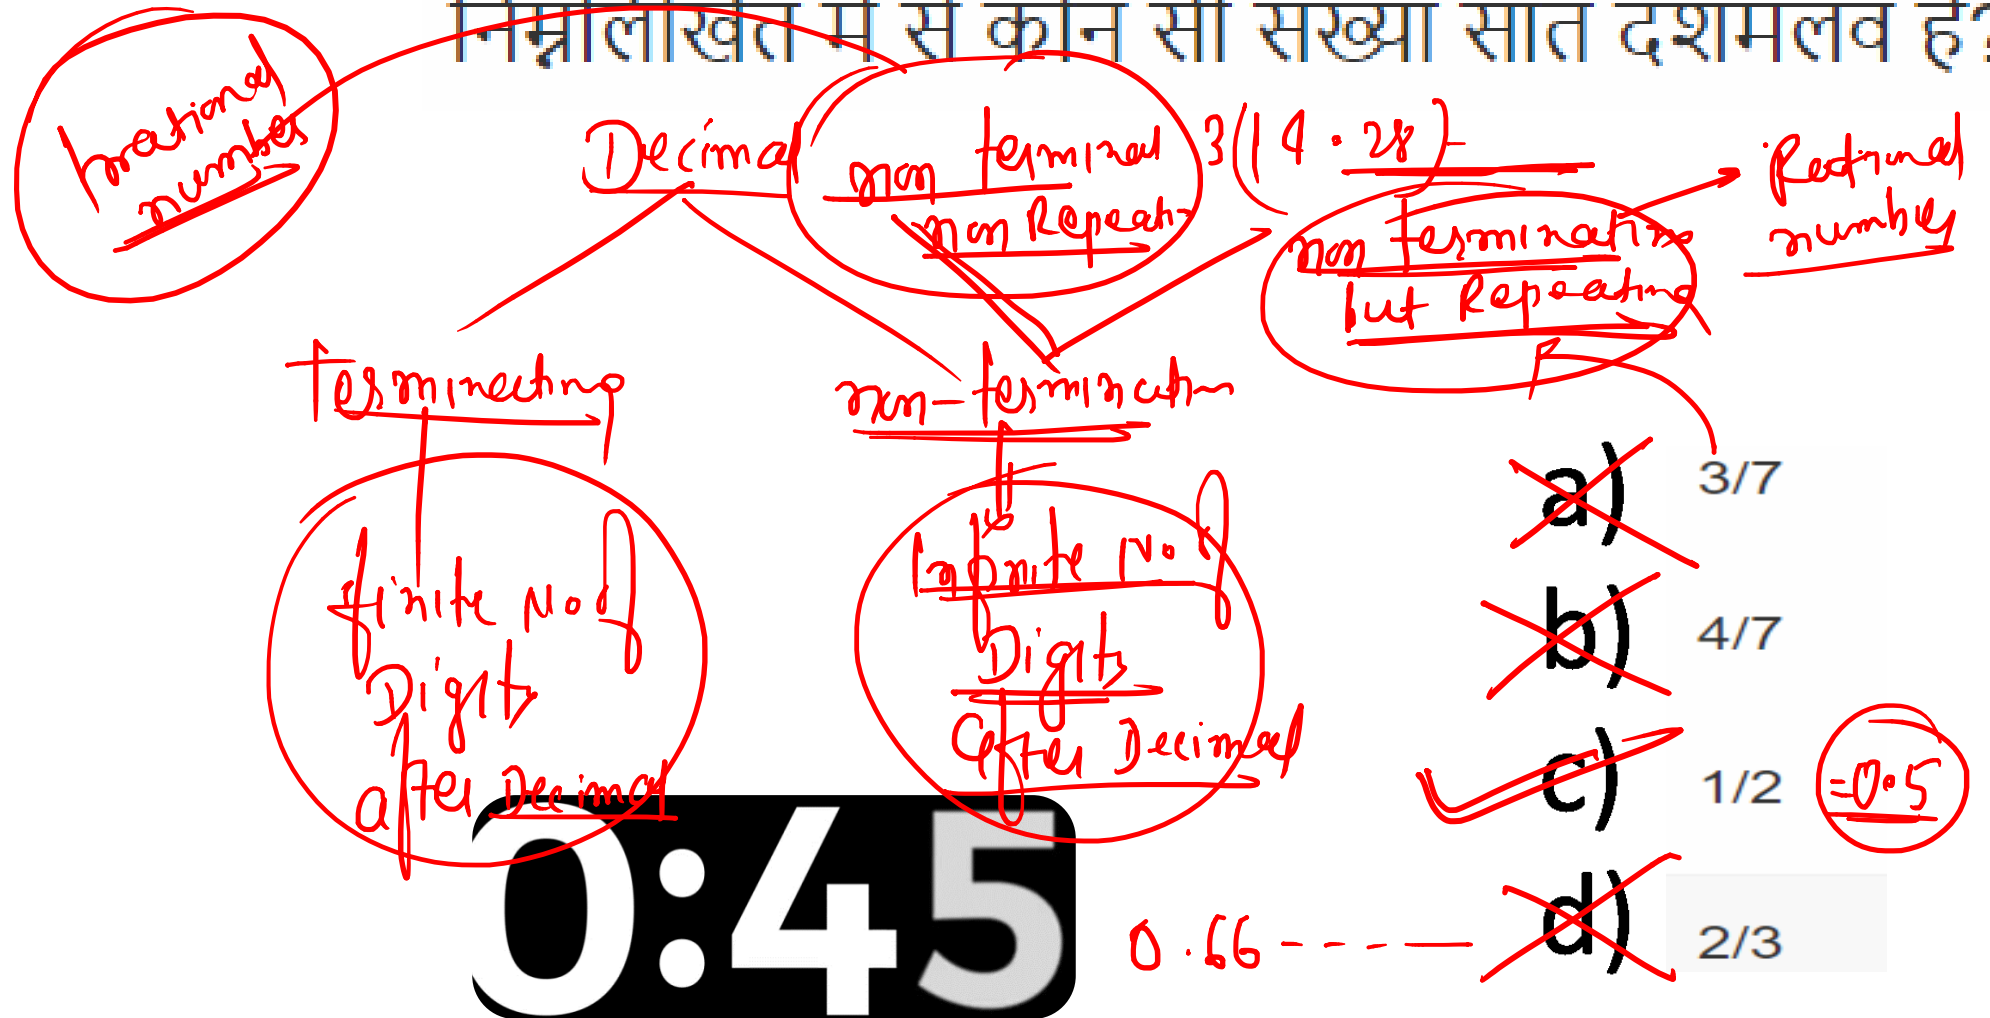 निम्नलिखित में से कौन सी संख्या सांत दशमलव है?
Irrational
numbers
Decimal
non terminal
non Repeati
3(14.28)
non terminating
but Repeating
Rational
number
Terminating
non-terminating
finite No of
Digits
after Decimal
Infinite No of
Digits
after Decimal
a) 3/7
b) 4/7
c) 1/2 =0.5
d) 2/3
0.66----
0:45